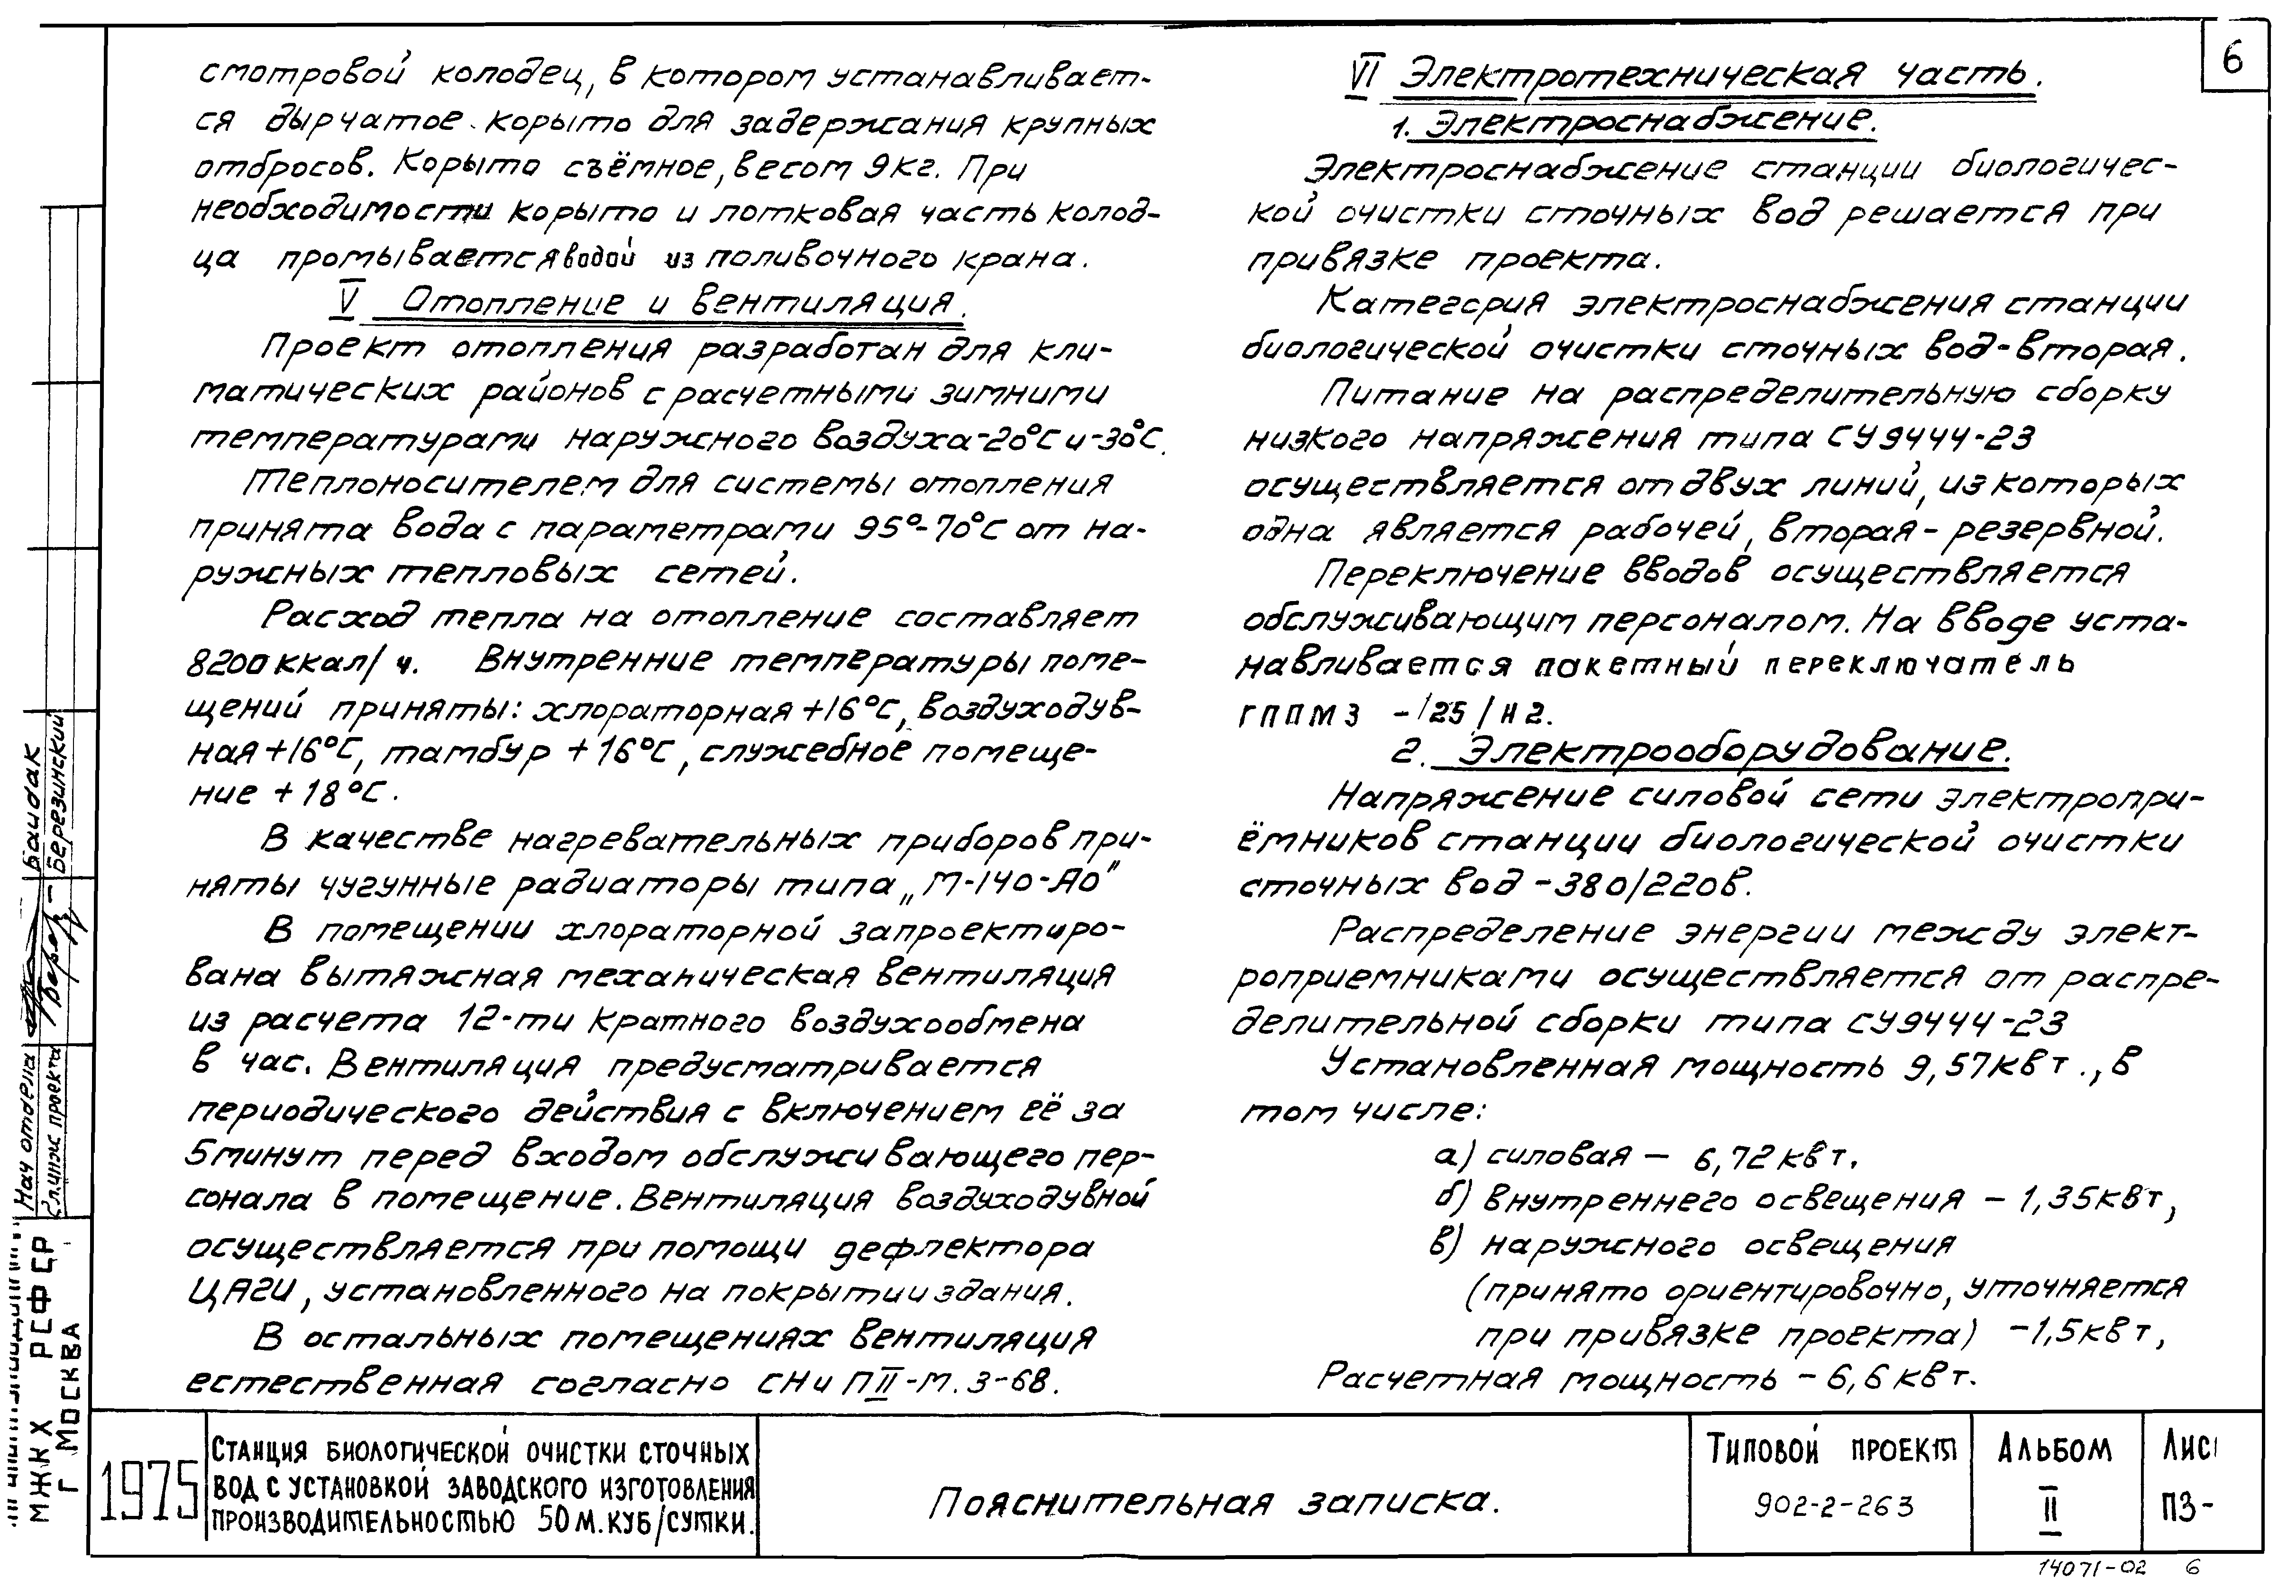 6
смотровой колодец, в котором устанавливает-
ся дырчатое корыто для задержания крупных
отбросов. Корыто съёмное, весом 9кг. При
необходимости корыто и лотковая часть колод-
ца промывается водой из поливочного крана.
V Отопление и вентиляция.
Проект отопления разработан для кли-
матических районов с расчетными зимними
температурами наружного воздуха -20°С и -30°С.
Теплоносителем для системы отопления
принята вода с параметрами 95°-70°С от на-
ружных тепловых сетей.
Расход тепла на отопление составляет
8200 ккал/ч. Внутренние температуры поме-
щений приняты: хлораторная +16°С, воздуходув-
ная +16°С, тамбур +16°С, служебное помеще-
ние +18°С.
В качестве нагревательных приборов при-
няты чугунные радиаторы типа „М-140-АО"
В помещении хлораторной запроектиро-
вана вытяжная механическая вентиляция
из расчета 12-ти кратного воздухообмена
в час. Вентиляция предусматривается
периодического действия с включением её за
5 минут перед входом обслуживающего пер-
сонала в помещение. Вентиляция воздуходувной
осуществляется при помощи дефлектора
ЦАГИ, установленного на покрытии здания.
В остальных помещениях вентиляция
естественная согласно СНиП II-М.3-68.
VI Электротехническая часть.
1. Электроснабжение.
Электроснабжение станции биологичес-
кой очистки сточных вод решается при
привязке проекта.
Категория электроснабжения станции
биологической очистки сточных вод-вторая.
Питание на распределительную сборку
низкого напряжения типа СУ9444-23
осуществляется от двух линий, из которых
одна является рабочей, вторая - резервной.
Переключение вводов осуществляется
обслуживающим персоналом. На вводе уста-
навливается пакетный переключатель
ГППМ3 -125/Н2.
2. Электрооборудование.
Напряжение силовой сети электропри-
ёмников станции биологической очистки
сточных вод -380/220в.
Распределение энергии между элект-
роприемниками осуществляется от распре-
делительной сборки типа СУ9444-23
Установленная мощность 9,57квт., в
том числе:
а) силовая - 6,72квт.
б) внутреннего освещения - 1,35квт,
в) наружного освещения
(принято ориентировочно, уточняется
при привязке проекта) -1,5квт,
Расчетная мощность - 6,6квт.
МЖКХ РСФСР
Г МОСКВА
Нач отдела Байдак
Гл.инж проекта Березинский
1975
СТАНЦИЯ БИОЛОГИЧЕСКОЙ ОЧИСТКИ СТОЧНЫХ
ВОД С УСТАНОВКОЙ ЗАВОДСКОГО ИЗГОТОВЛЕНИЯ
ПРОИЗВОДИТЕЛЬНОСТЬЮ 50 М.КУБ/СУТКИ.
Пояснительная записка.
ТИПОВОЙ ПРОЕКТ
902-2-263
АЛЬБОМ
II
ЛИС
ПЗ-
14071-02 6